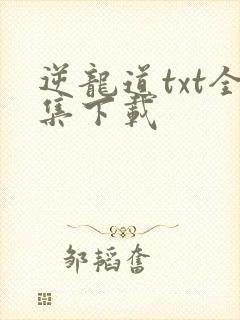 逆龍道txt全
集下載
邹韬奮